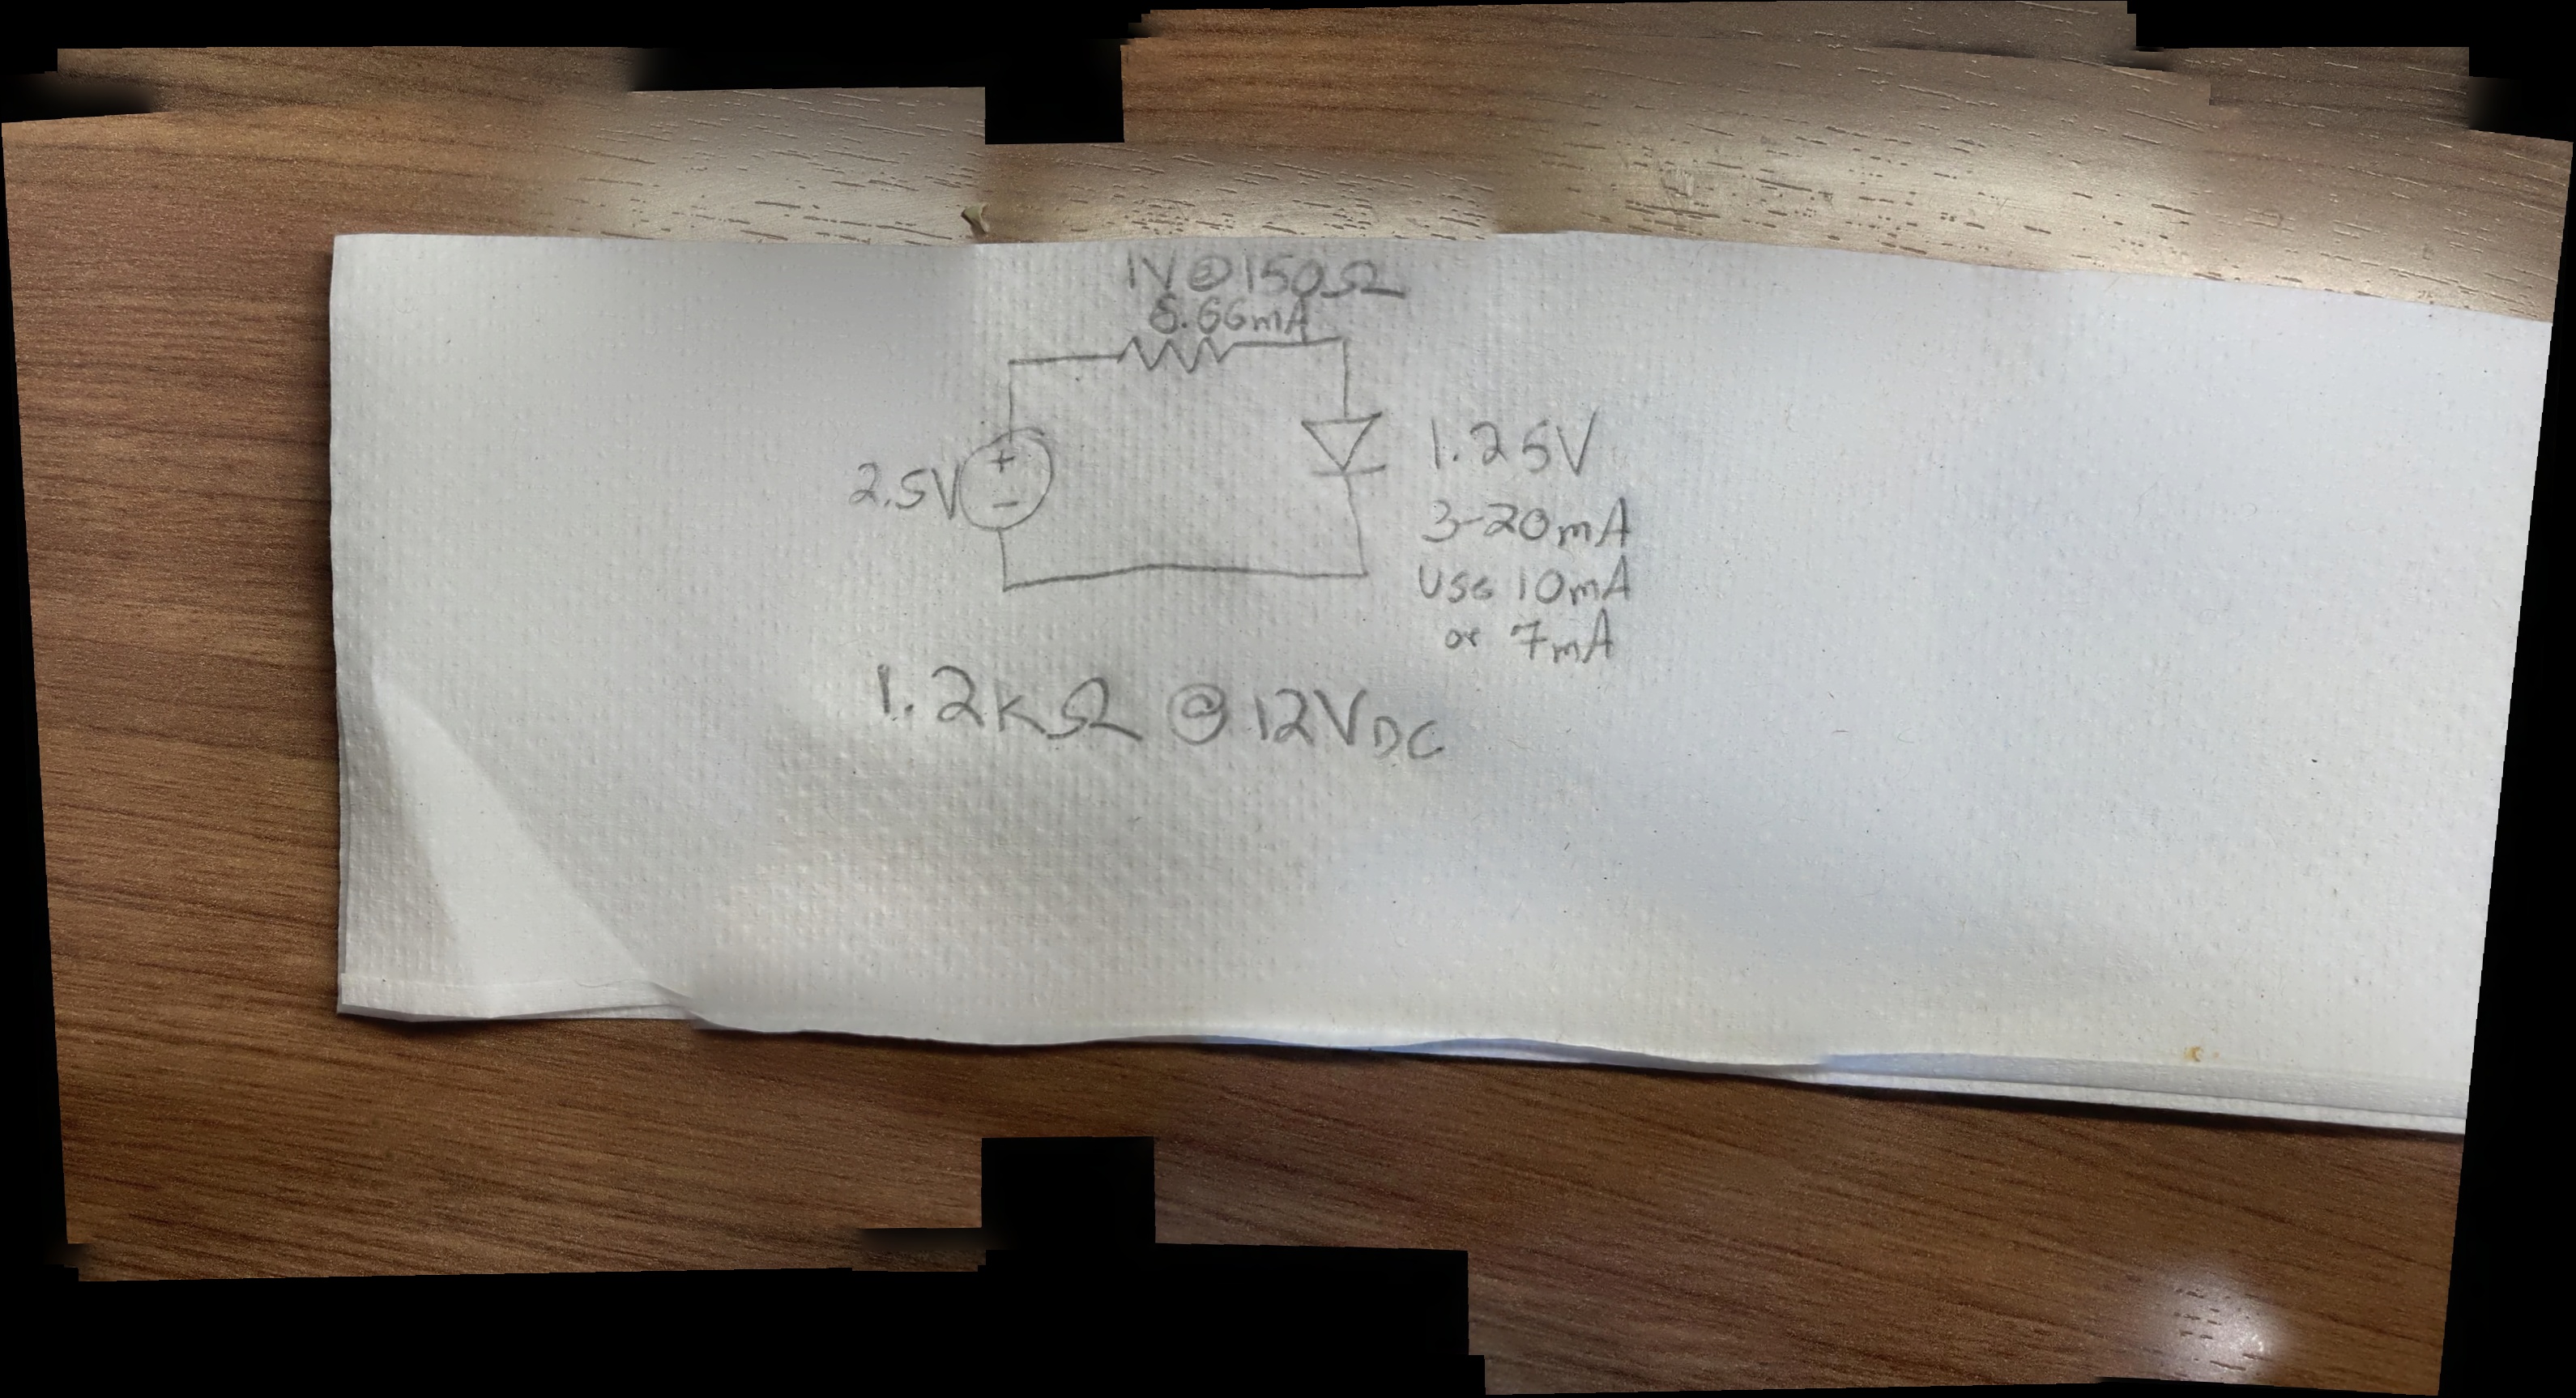 1V@150Ω
6.66mA
+
-
2.5V
1.25V
3-20mA
Use 10mA
or 7mA
1.2kΩ @ 12VDC